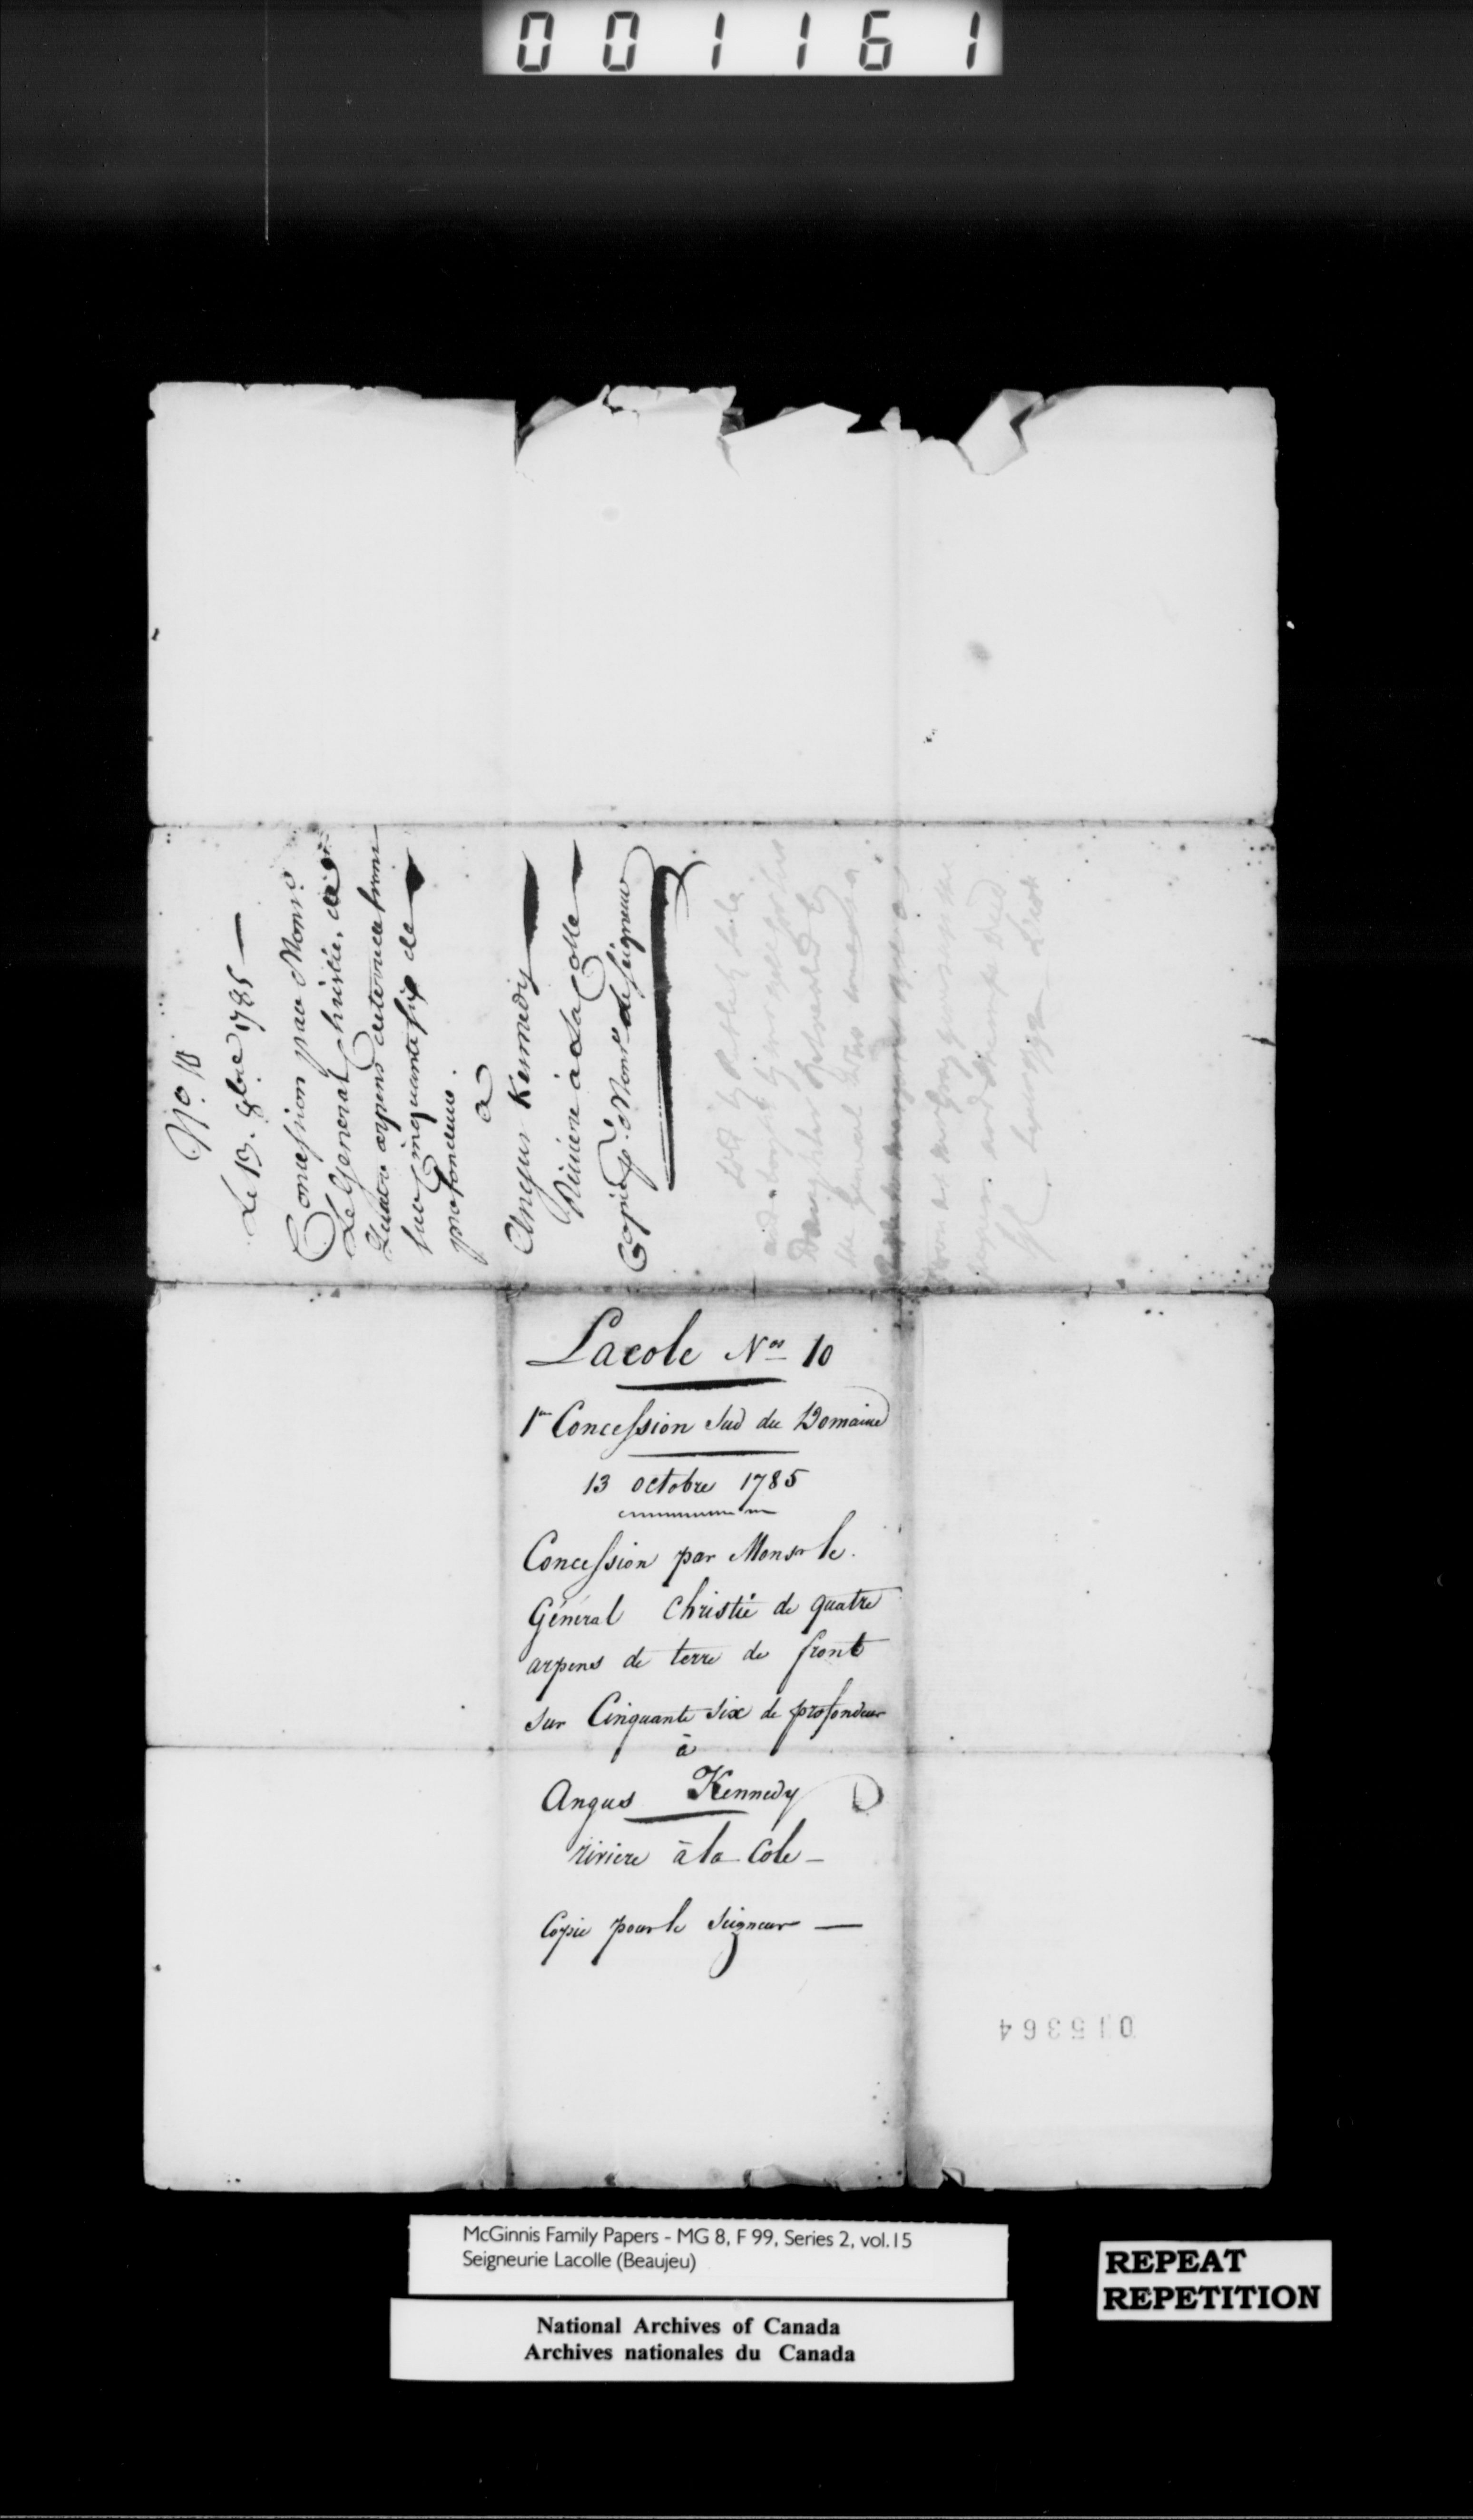 001161
No. 10
Le 13. 8bre 1785 —
Concession par Monsr.
Le General Christie, de
Quatre arpens de terre de front
sur Cinquante six de
profondeur.
a
Angus Kennedy
Riviere a La Colle
Copie pr. Monsr. de Seigneur
sold by Publick Sale
and bought by
Daughter
the General
and
Lacole Nos 10
1re Concession Sud du Domaine
13 octobre 1785
Concession par Monsr le
Géneral Christie de quatre
arpens de terre de front
sur Cinquante Six de profondeur
à
Angus Kennedy
riviere à la Cole —
Copie pour le Seigneur —
015364
McGinnis Family Papers - MG 8, F 99, Series 2, vol.15
Seigneurie Lacolle (Beaujeu)
National Archives of Canada
Archives nationales du Canada
REPEAT
REPETITION